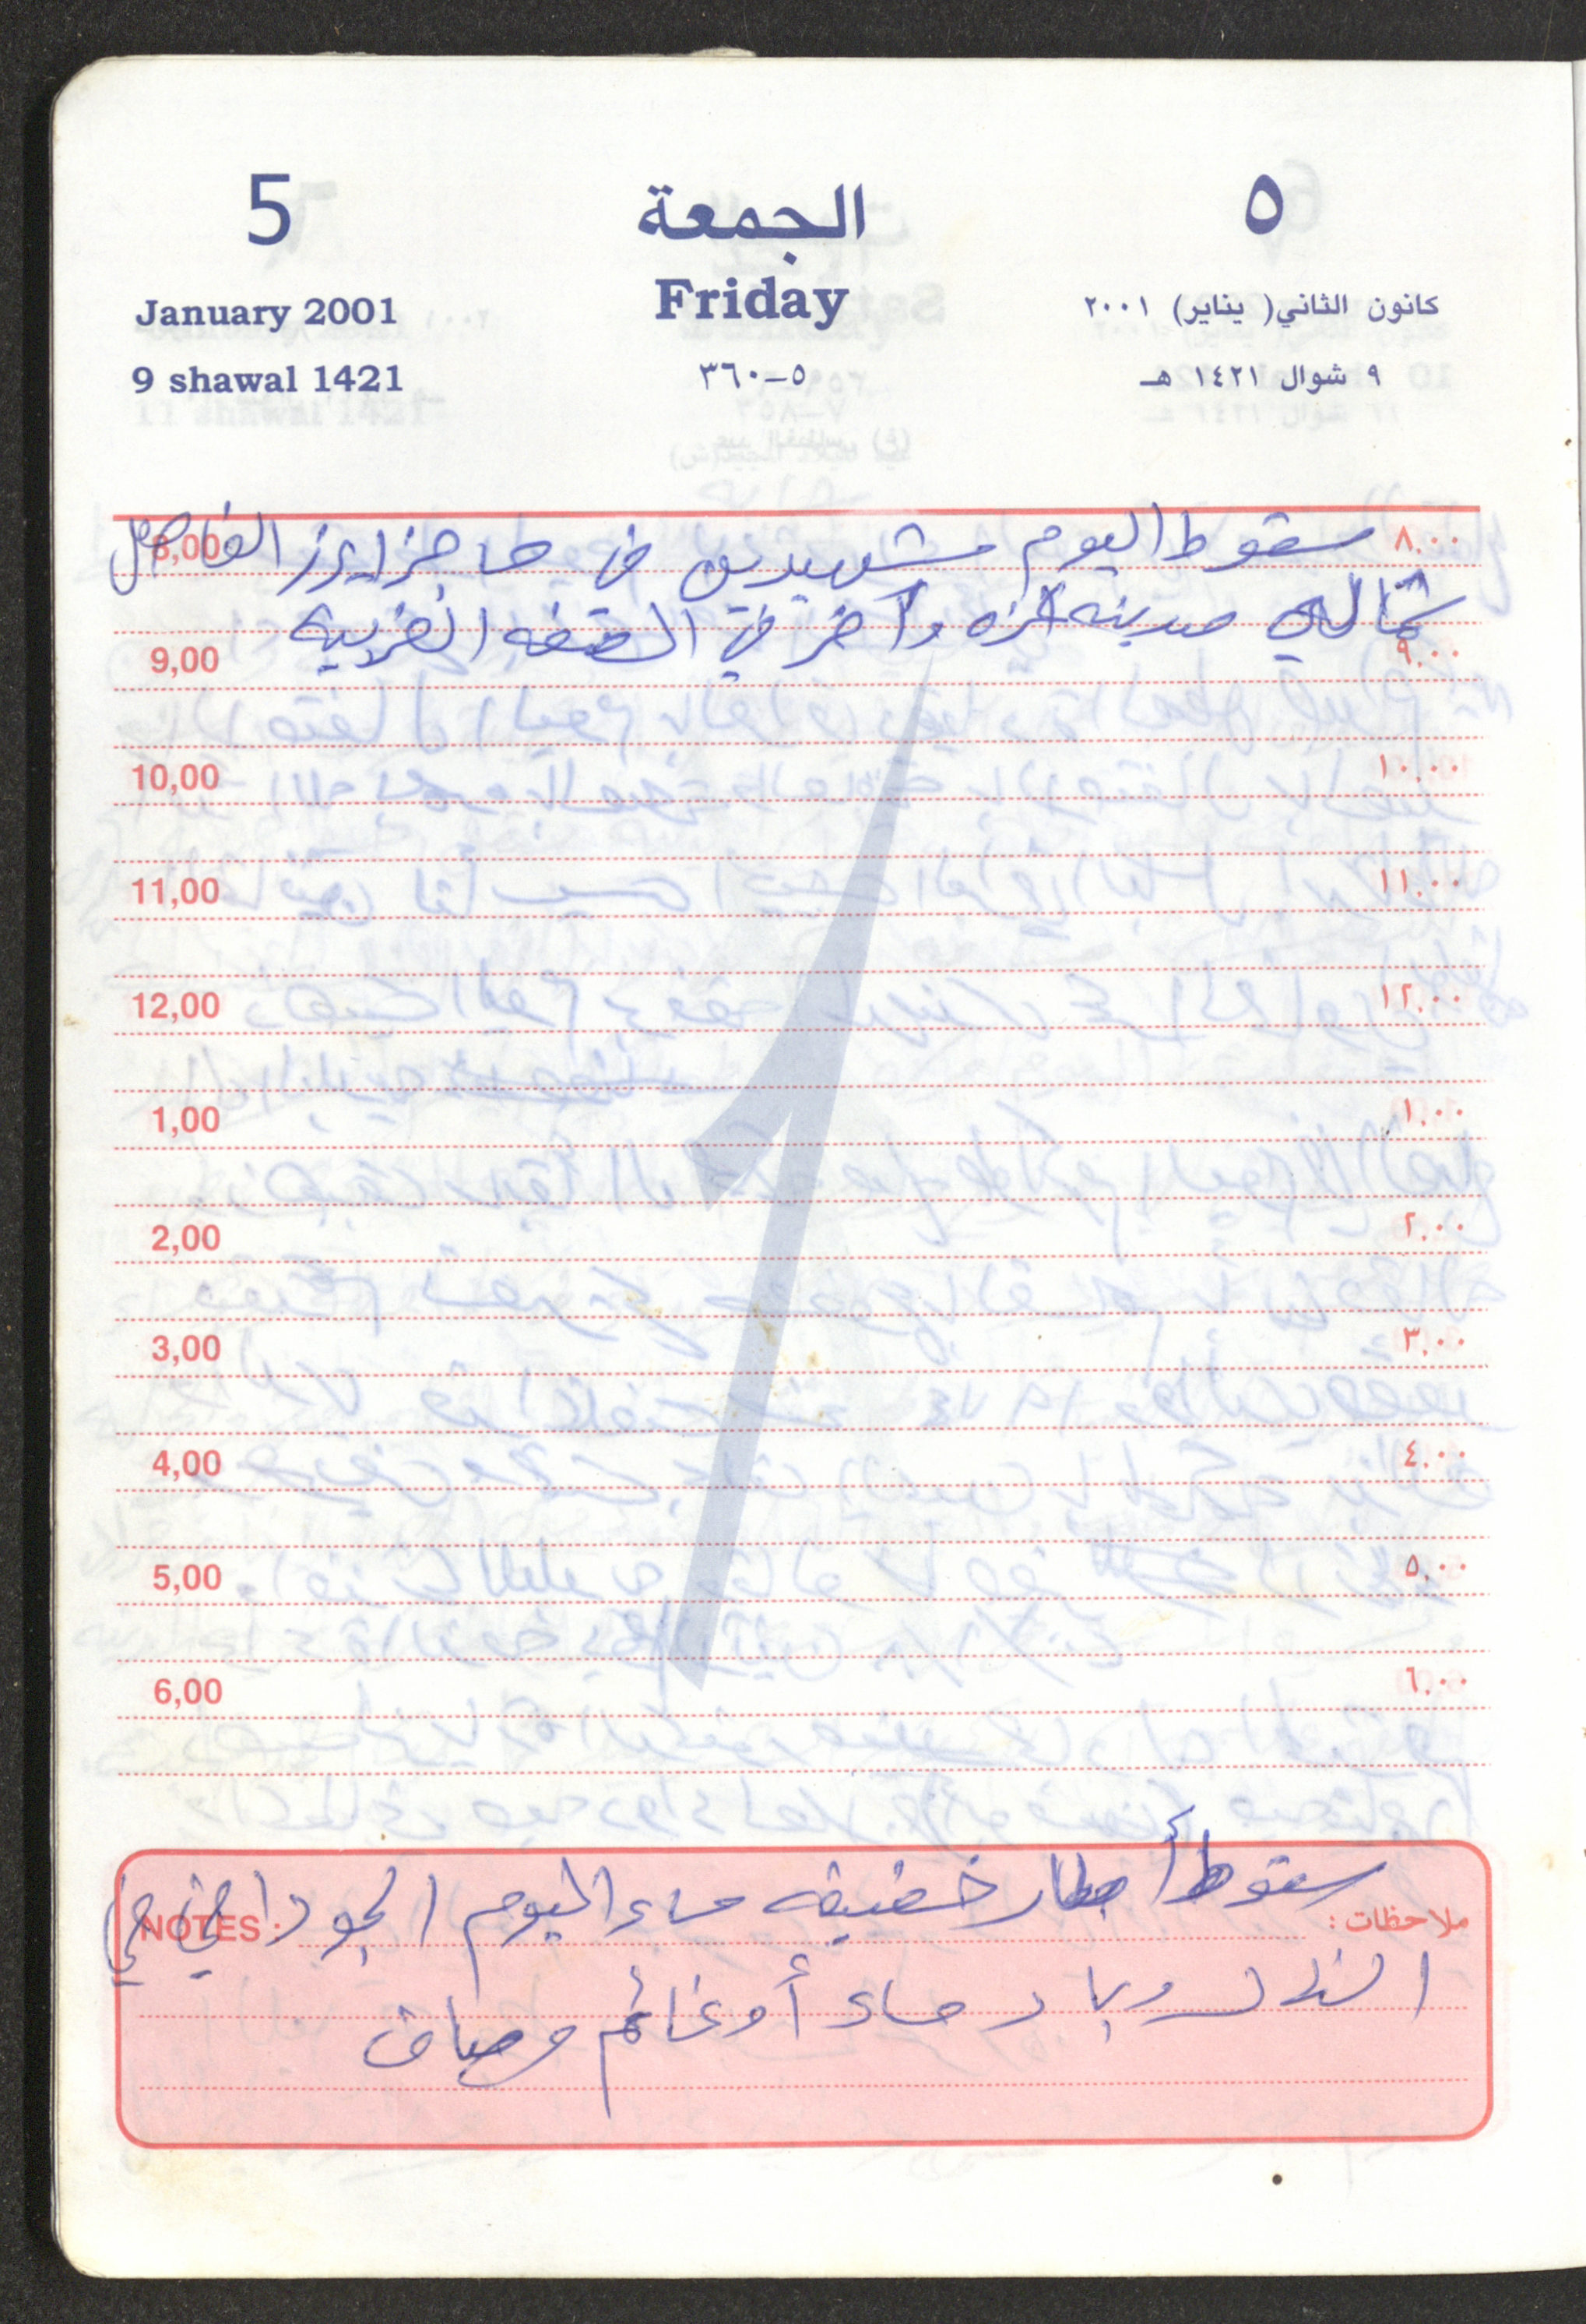 5 الجمعة ٥
January 2001 Friday كانون الثاني( يناير) ٢٠٠١
9 shawal 1421 ٥-٣٦٠ ٩ شوال ١٤٢١ هـ
8,00 سقوط اليوم شهيدين في حاجز ايرز الفاصل ٨.٠٠
شمالي مدينه غزه وآخر في الضفه الغربيه
9,00 ٩.٠٠
10,00 ١٠.٠٠
11,00 ١١.٠٠
12,00 ١٢.٠٠
1,00 ١.٠٠
2,00 ٢.٠٠
3,00 ٣.٠٠
4,00 ٤.٠٠
5,00 ٥.٠٠
6,00 ٦.٠٠
سقوط أمطار خفيفه مساء اليوم الجو دافئ في
NOTES : ملاحظات :
النهار وبارد مساء أو غائم وصاف